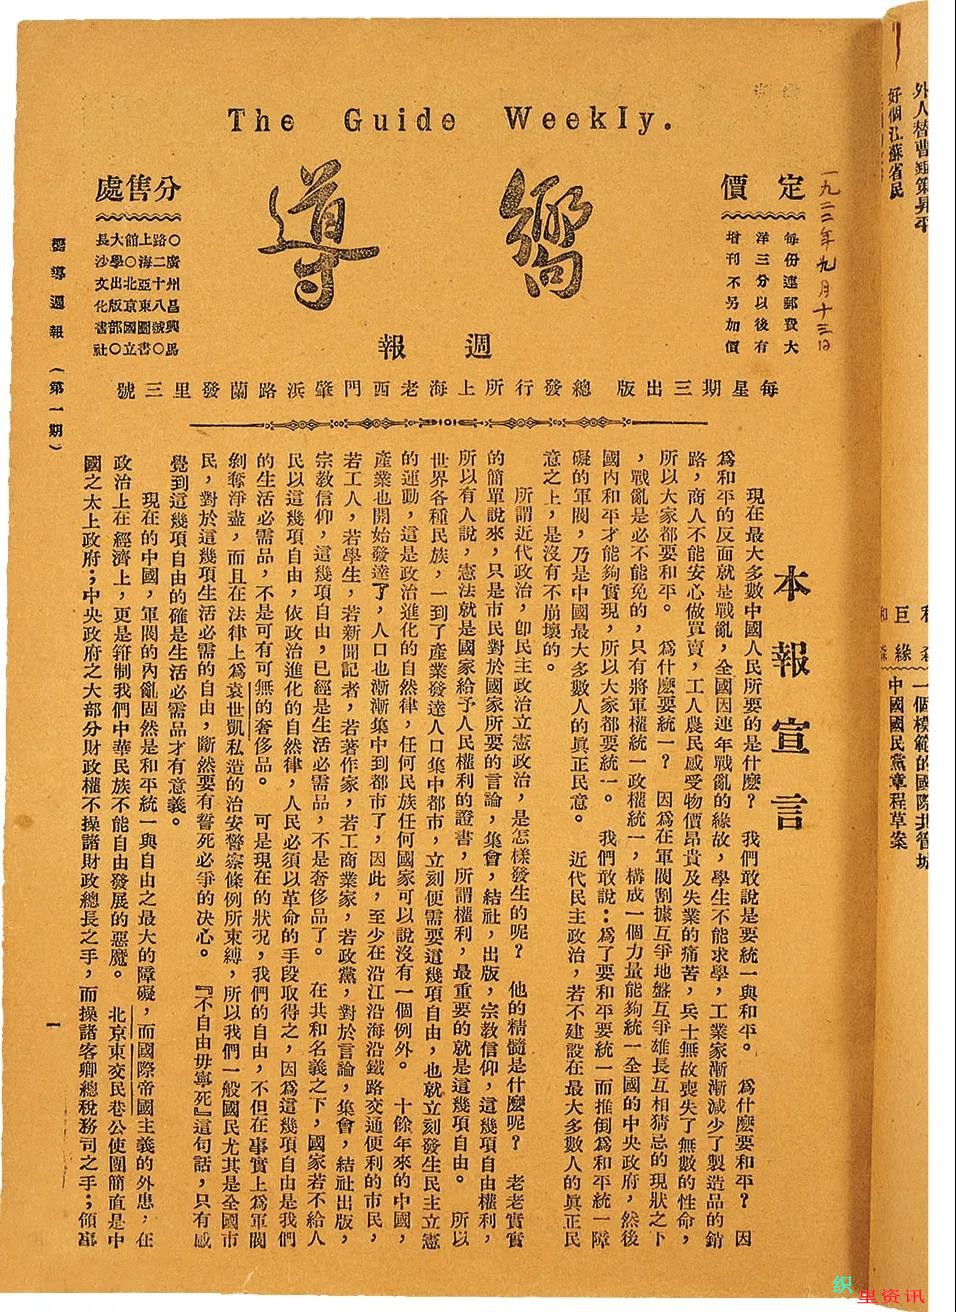 The Guide Weekly.
嚮導
週報
定價
每份連郵費大
洋三分以後有
增刊不另加價
一九二二年九月十三日
分售處
○廣州昌興馬
路二十八號○
上海亞東圖書
館○北京國立
大學出版部○
長沙文化書社
每星期三出版 總發行所上海老西門肇浜路蘭發里三號
本報宣言
現在最大多數中國人民所要的是什麼? 我們敢說是要統一與和平。 為什麼要和平? 因
為和平的反面就是戰亂,全國因連年戰亂的緣故,學生不能求學,工業家漸漸減少了製造品的銷
路,商人不能安心做買賣,工人農民感受物價昂貴及失業的痛苦,兵士無故喪失了無數的性命,
所以大家都要和平。 為什麼要統一? 因為在軍閥割據互爭地盤互爭雄長互相猜忌的現狀之下
,戰亂是必不能免的,只有將軍權統一政權統一,構成一個力量能夠統一全國的中央政府,然後
國內和平才能夠實現,所以大家都要統一。 我們敢說:為了要和平要統一而推倒為和平統一障
礙的軍閥,乃是中國最大多數人的真正民意。 近代民主政治,若不建設在最大多數人的真正民
意之上,是沒有不崩壞的。
所謂近代政治,卽民主政治立憲政治,是怎樣發生的呢? 他的精髓是什麼呢? 老老實實
的簡單說來,只是市民對於國家所要的言論,集會,結社,出版,宗教信仰,這幾項自由權利,
所以有人說,憲法就是國家給予人民權利的證書,所謂權利,最重要的就是這幾項自由。 所以
世界各種民族,一到了產業發達人口集中都市,立刻便需要這幾項自由,也就立刻發生民主立憲
的運動,這是政治進化的自然律,任何民族任何國家可以說沒有一個例外。 十餘年來的中國,
產業也開始發達了,人口也漸漸集中到都市了,因此,至少在沿江沿海沿鐵路交通便利的市民,
若工人,若學生,若新聞記者,若著作家,若工商業家,若政黨,對於言論,集會,結社出版,
宗教信仰,這幾項自由,已經是生活必需品,不是奢侈品了。 在共和名義之下,國家若不給人
民以這幾項自由,依政治進化的自然律,人民必須以革命的手段取得之,因為這幾項自由是我們
的生活必需品,不是可有可無的奢侈品。 可是現在的狀況,我們的自由,不但在事實上為軍閥
剝奪淨盡,而且在法律上為袁世凱私造的治安警察條例所束縛,所以我們一般國民尤其是全國市
民,對於這幾項生活必需的自由,斷然要有誓死必爭的決心。 『不自由毋寧死』這句話,只有感
覺到這幾項自由的確是生活必需品才有意義。
現在的中國,軍閥的內亂固然是和平統一與自由之最大的障礙,而國際帝國主義的外患,在
政治上在經濟上,更是箝制我們中華民族不能自由發展的惡魔。 北京東交民巷公使團簡直是中
國之太上政府;中央政府之大部分財政權不操諸財政總長之手,而操諸客卿總稅務司之手;領事
嚮導週報 (第一期)
一
好個江蘇省民
一個模範的國際共管城
中國國民黨章程草案
织里资讯